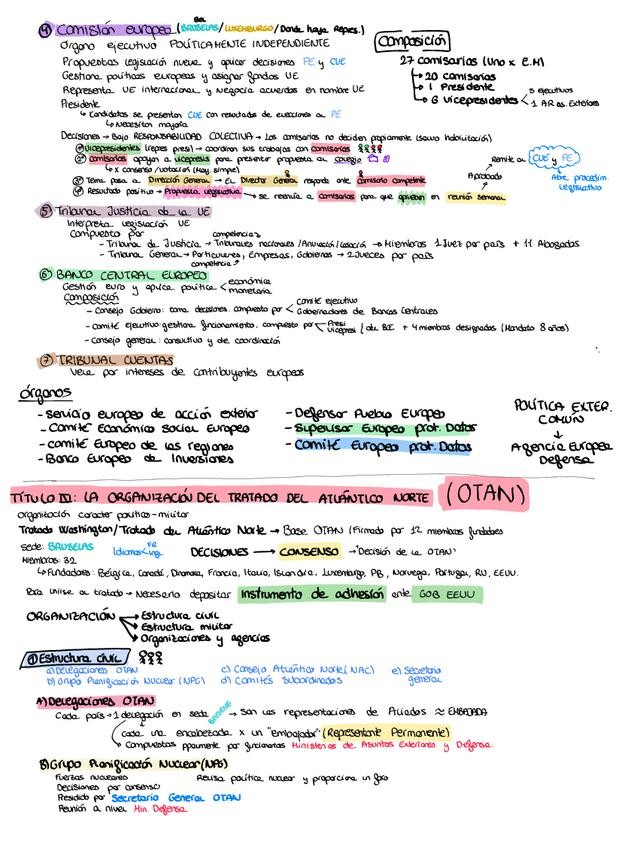 ④ Comisión europea (BRUSELAS/LUXEMBURGO/Donde haya Repres.)
Bel
Órgano ejecutivo POLÍTICAMENTE INDEPENDIENTE
Composición
Propuestas legislación nueva y aplicar decisiones PE y CUE
27 comisarios (Uno x E.M)
Gestiona políticas europeas y asigna fondos UE
→ 20 comisarios
Representa UE internacional y Negocia acuerdos en nombre UE
→ 1 Presidente
Presidente
→ 6 Vicepresidentes < 5 ejecutivos
1 AR as. Exteriores
↳ Candidatos se presentan CUE con resultados de elecciones a PE
↳ Necesitan mayoría
Decisiones → Bajo RESPONSABILIDAD COLECTIVA → Los comisarios no deciden propiamente (salvo habilitación)
① Vicepresidentes (repres presi) → coordinan sus trabajos con comisarios
② comisarios apoyan a vicepresis para presentar propuesta al colegio
↳ x consenso/votación (May. simple)
③ Tema pasa a Dirección General → EL Director General responde ante comisario competente
④ Resultado positivo → Propuesta legislativa → se reenvía a comisarios para que aprueben en reunión semanal
Aprobado
Remite a
CUE y PE
Abre procedim. legislativo
⑤ Tribunal Justicia de la UE
Interpreta legislación UE
Compuesto por
competencias
- Tribunal de Justicia → Tribunales nacionales/Anulación/casación → Miembros 1 Juez por país + 11 Abogados
- Tribunal General → Particulares, Empresas, Gobiernos → 2 Jueces por país
competencias
⑥ BANCO CENTRAL EUROPEO
Gestión euro y aplica política < económica
monetaria
Composición
- Consejo Gobierno: toma decisiones. compuesto por < Comité ejecutivo
Gobernadores de Bancos Centrales
- comité ejecutivo: gestiona funcionamiento. compuesto por < Presi
Vicepresi ( del BCE + 4 miembros designados (Mandato 8 años)
- consejo general: consultivo y de coordinación
⑦ TRIBUNAL CUENTAS
Vela por intereses de contribuyentes europeos
Órganos
- Servicio europeo de acción exterior
- Comité Económico Social Europeo
- comité Europeo de las regiones
- Banco Europeo de Inversiones
- Defensor Pueblo Europeo
- Supervisor Europeo prot. Datos
- Comité Europeo prot. Datos
POLÍTICA EXTER.
COMÚN
↓
Agencia Europea
Defensa
TÍTULO III: LA ORGANIZACIÓN DEL TRATADO DEL ATLÁNTICO NORTE (OTAN)
Organización carácter político-militar
Tratado Washington/Tratado del Atlántico Norte → Base OTAN (Firmado por 12 miembros fundadores
sede: BRUSELAS Idiomas < FR
ing. DECISIONES → CONSENSO → "Decisión de la OTAN"
Miembros: 32
↳ Fundadores: Bélgica, Canadá, Dinamarca, Francia, Italia, Islandia, Luxemburgo, PB, Noruega, Portugal, RU, EEUU.
Para unirse al tratado → Necesario depositar instrumento de adhesión ante GOB EEUU
ORGANIZACIÓN → Estructura civil
→ Estructura militar
→ Organizaciones y agencias
① Estructura civil
a) Delegaciones OTAN
b) Grupo Planificación Nuclear (NPG)
c) Consejo Atlántico Norte (NAC)
d) Comités Subordinados
e) Secretario general
A) Delegaciones OTAN
Cada país → 1 delegación en sede BRUSELAS → Son las representaciones de Aliados ≈ EMBAJADA
cada una encabezada x un "embajador" (Representante Permanente)
↳ Compuestas ppalmente por funcionarios Ministerios de Asuntos Exteriores y Defensa.
B) Grupo Planificación Nuclear (NPG)
Fuerzas nucleares Revisa política nuclear y proporciona un foro
Decisiones por consenso
Presidido por Secretario General OTAN
Reunión a nivel Min. Defensa